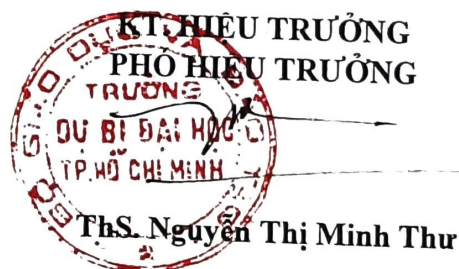 KT. HIỆU TRƯỞNG
PHÓ HIỆU TRƯỞNG
TRƯỜNG
DỰ BỊ ĐẠI HỌC
TP.HỒ CHÍ MINH
ThS. Nguyễn Thị Minh Thư